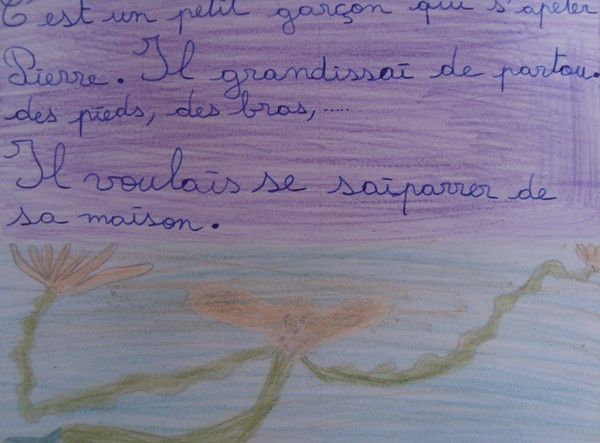 C'est un petit garçon qui s'apeler
Pierre. Il grandissai de partou.
des pieds, des bras, .....
Il voulais se saiparrer de
sa maison.